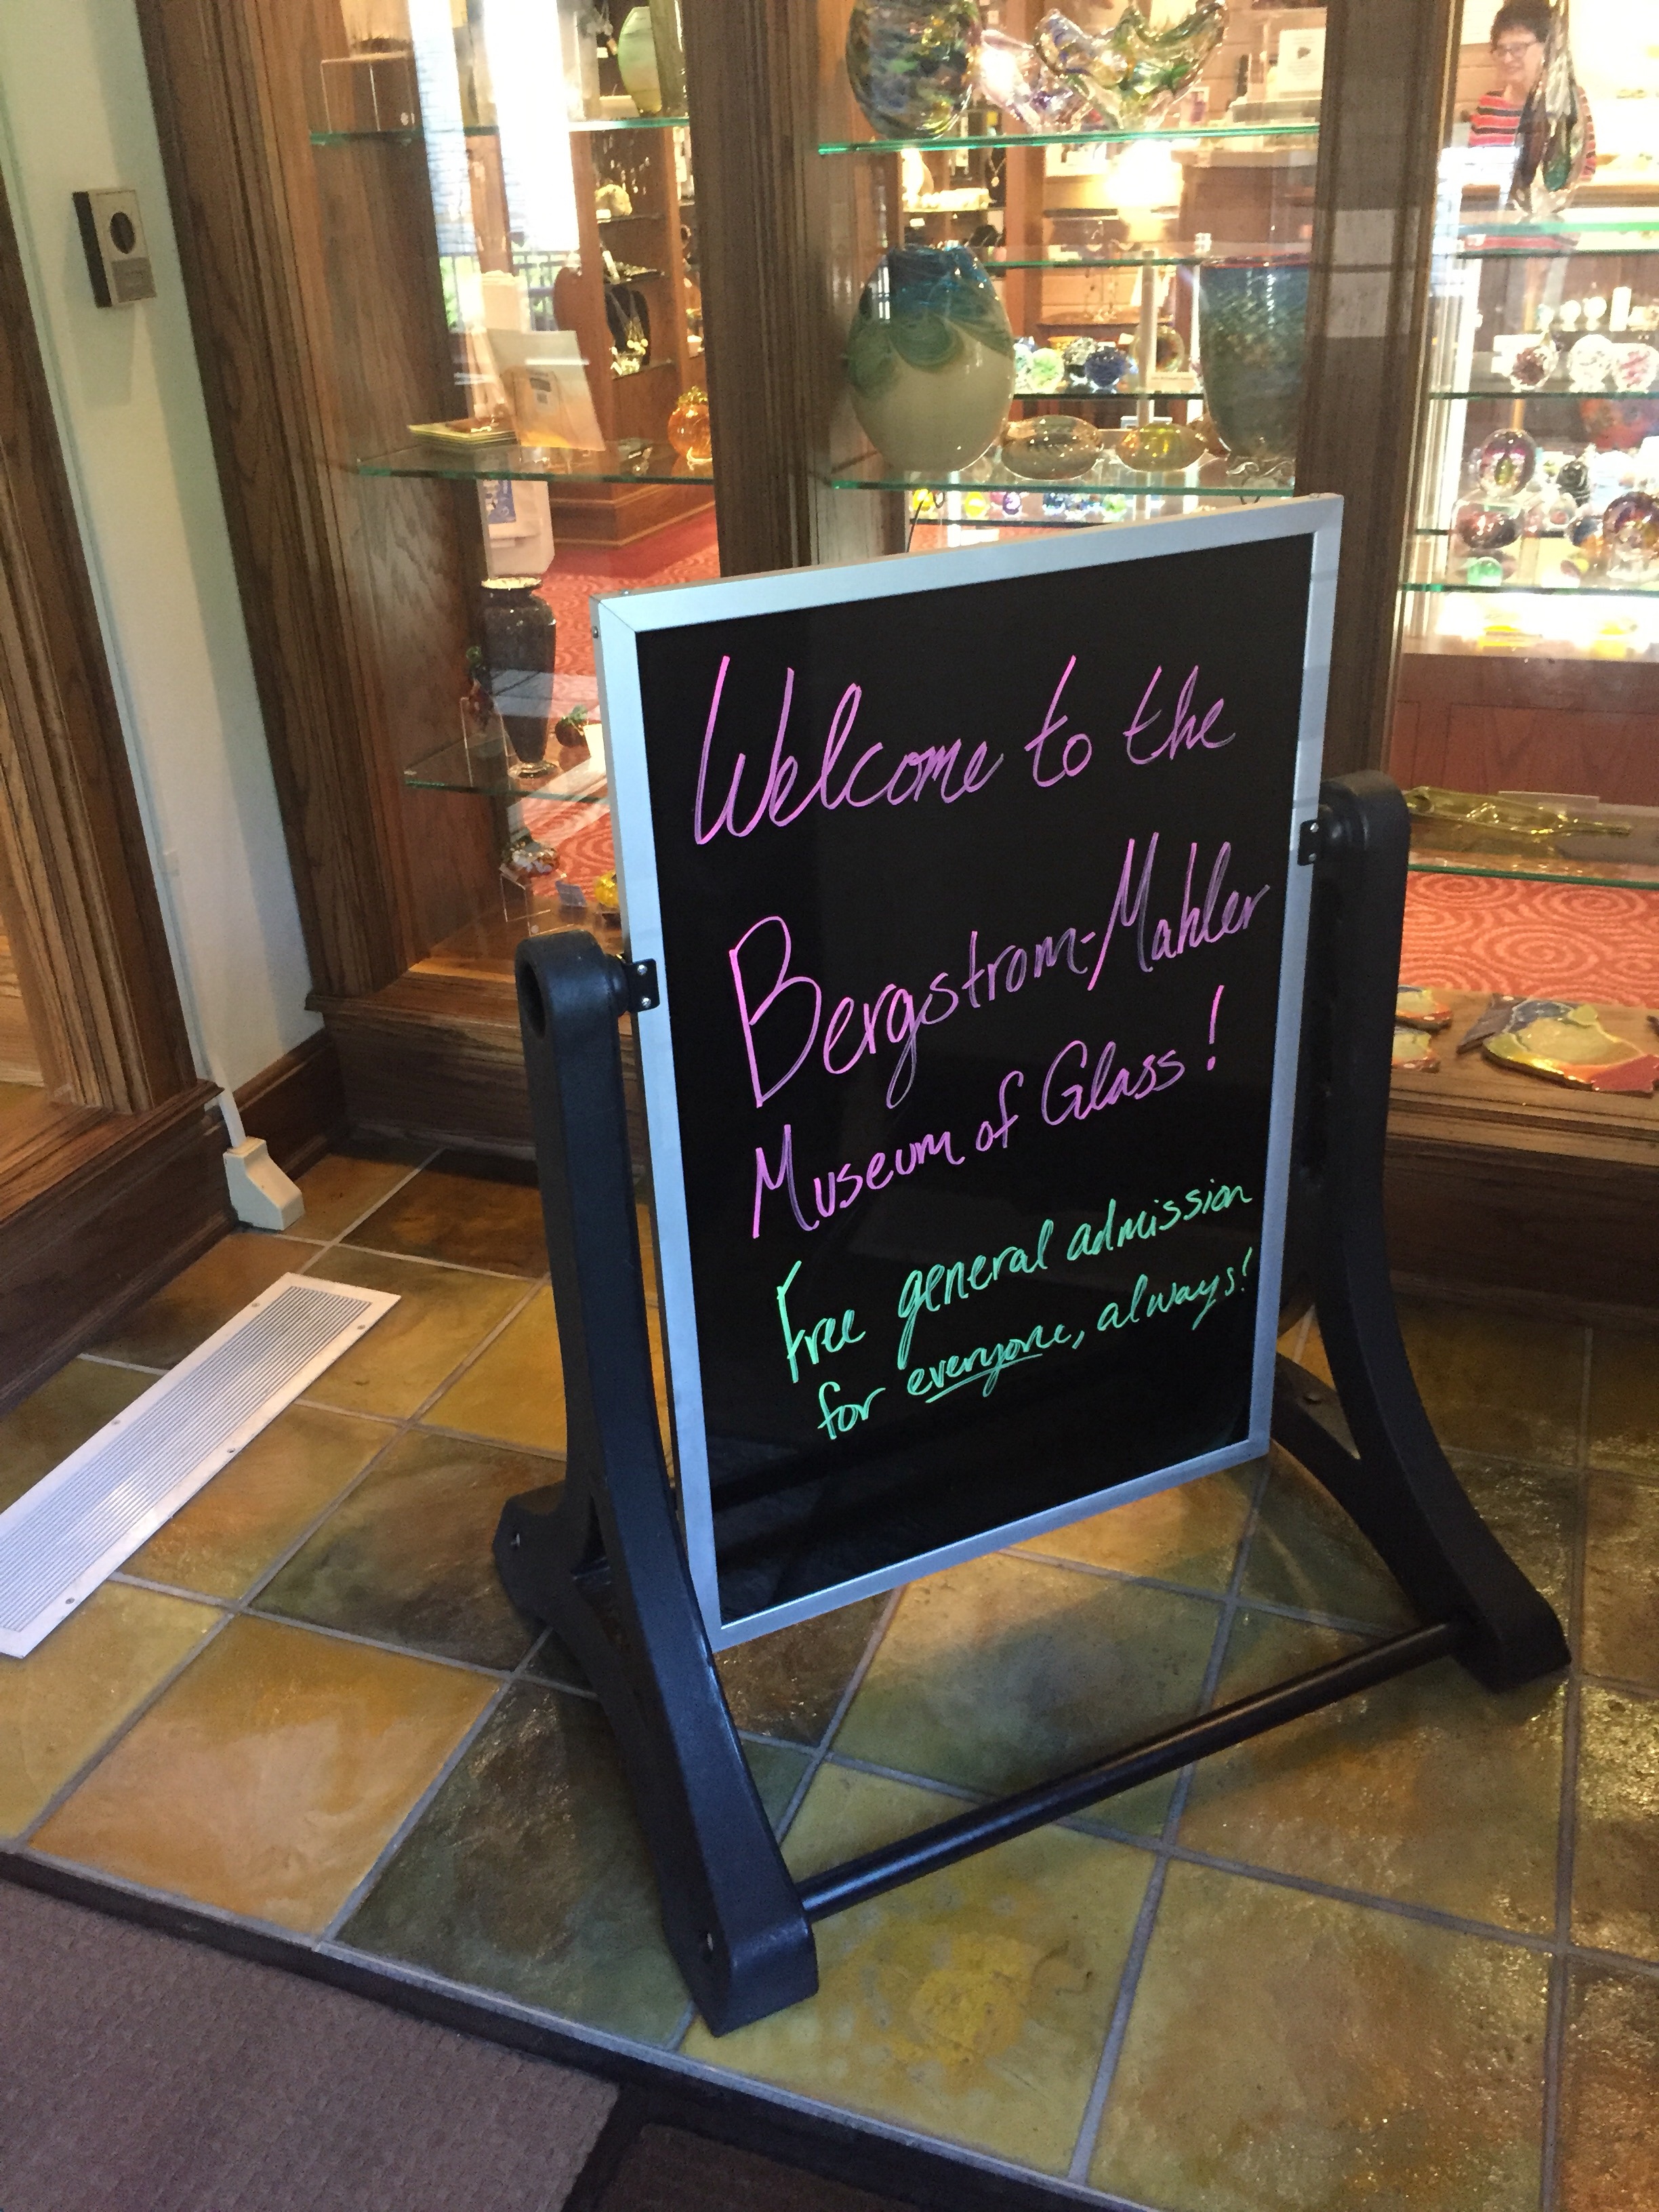 Welcome to the
Bergstrom-Mahler
Museum of Glass!
Free general admission
for everyone, always!